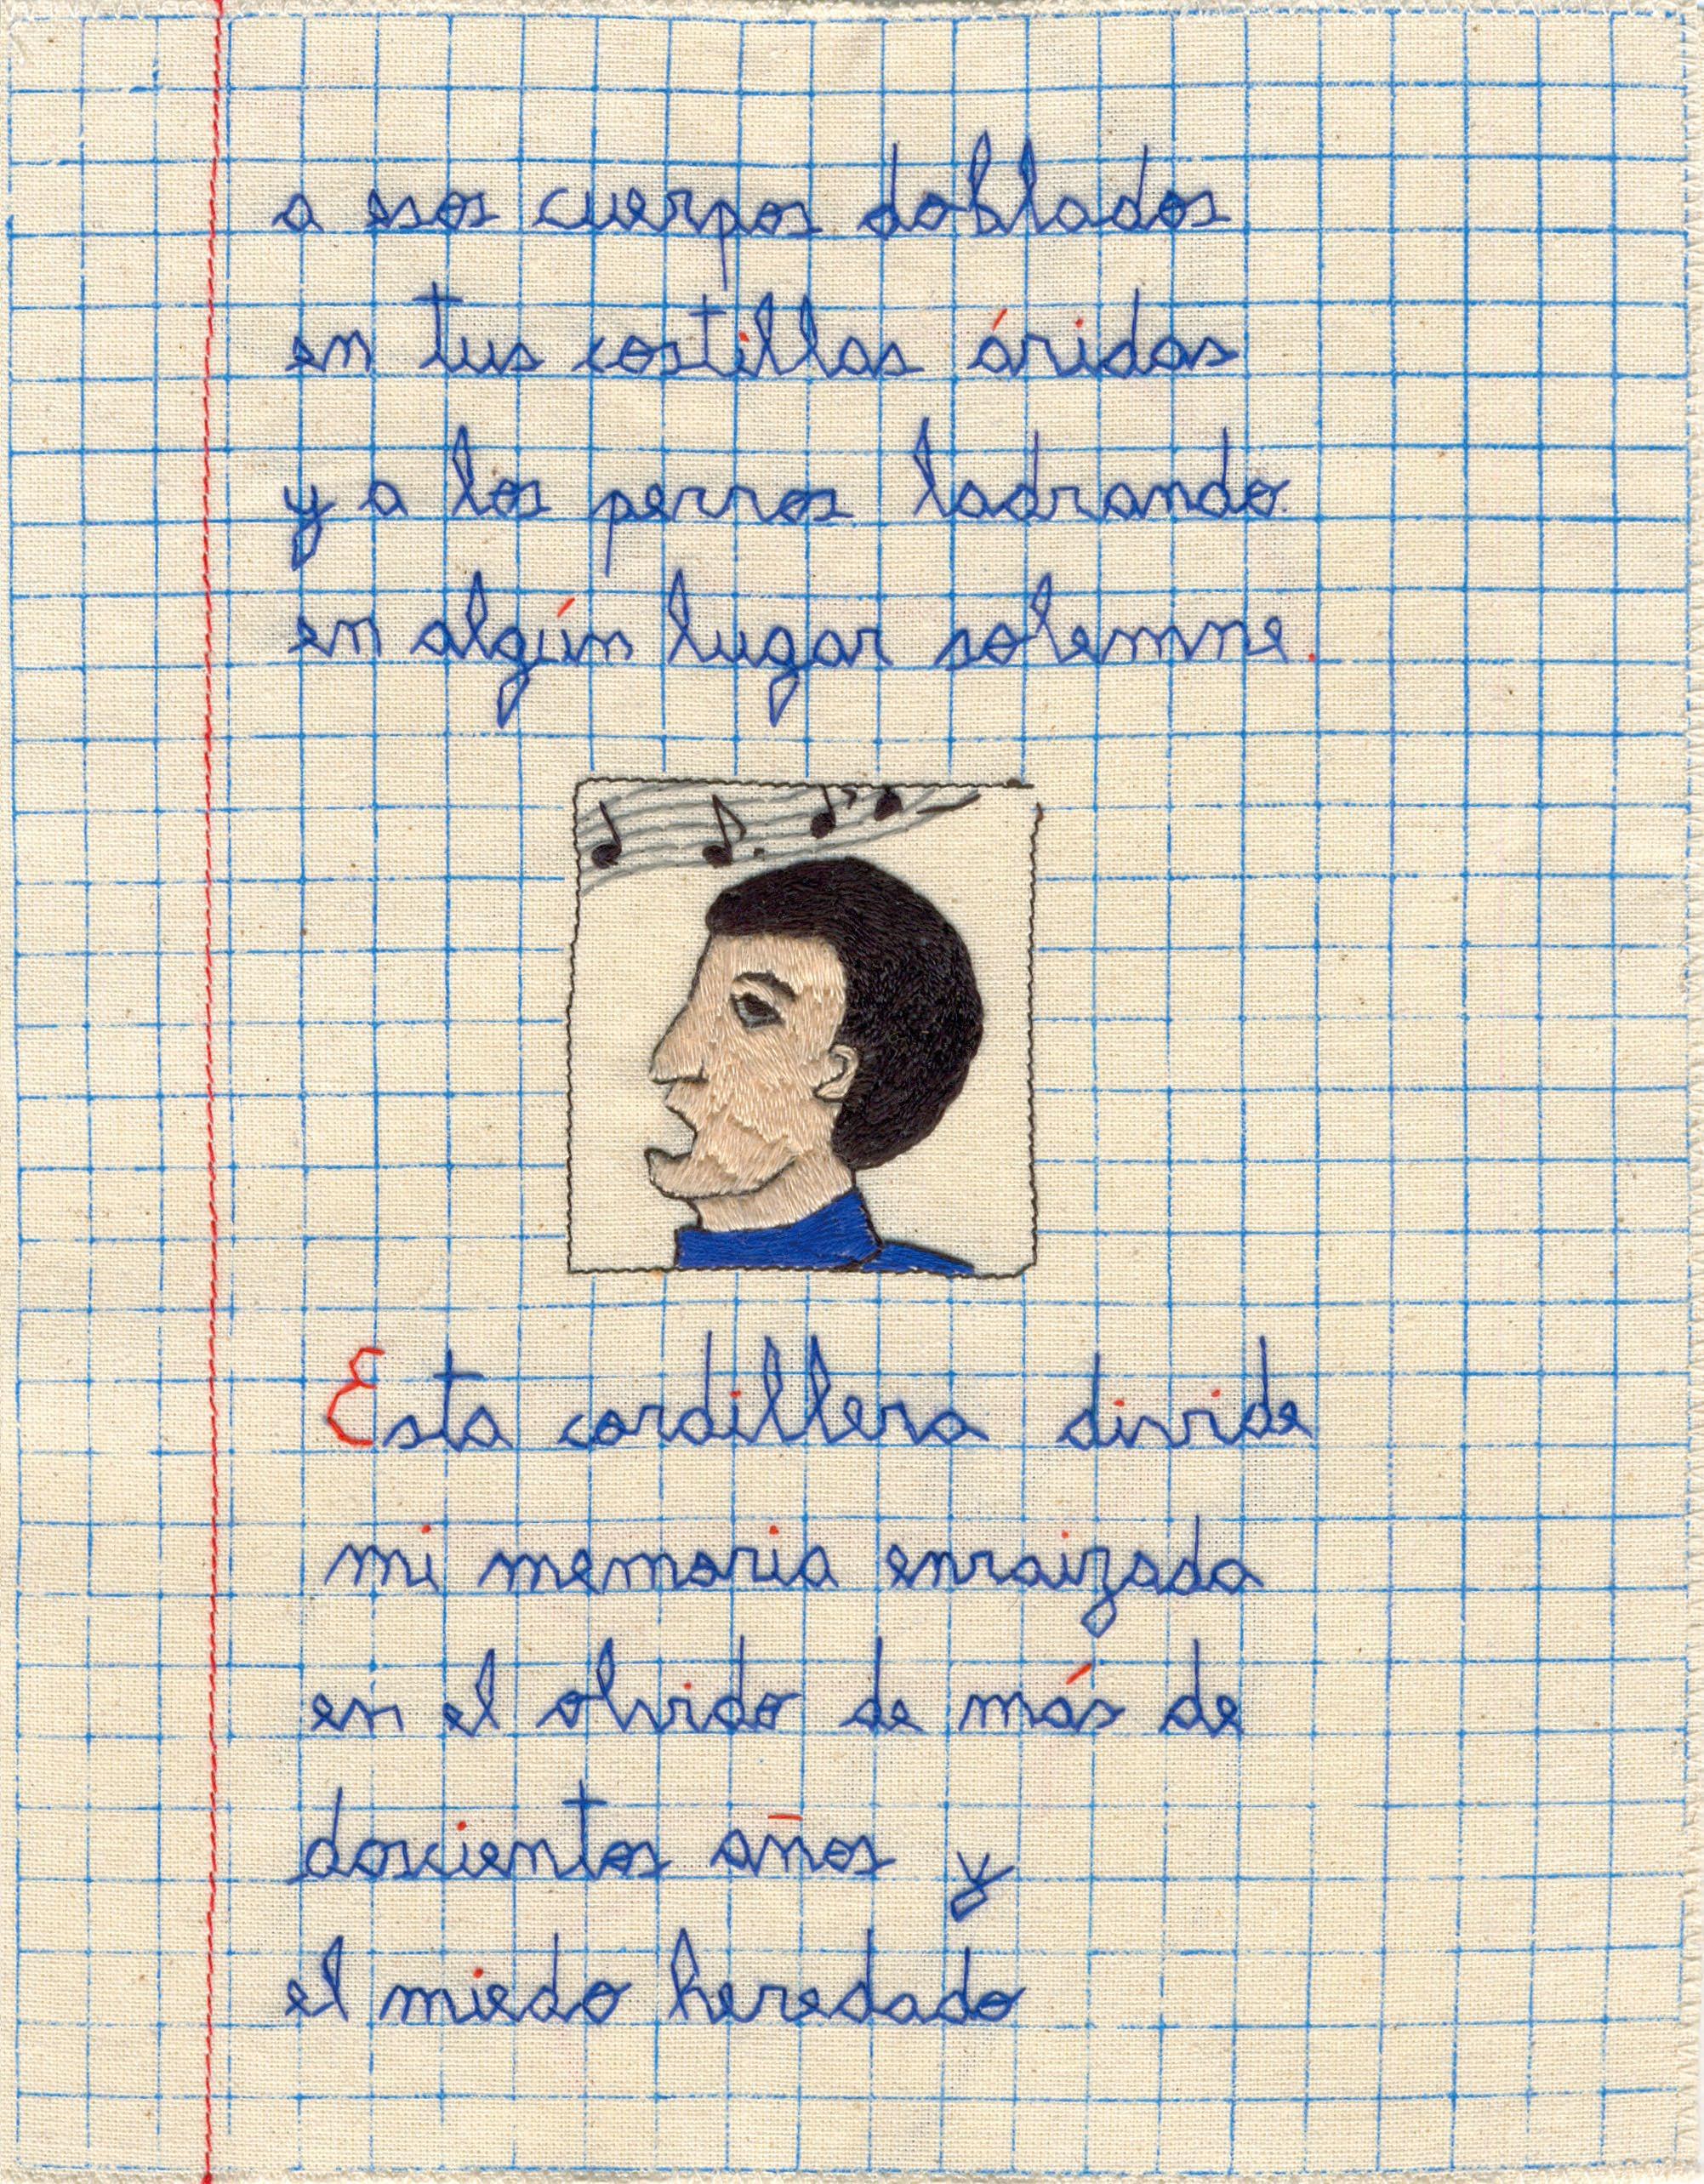 a esos cuerpos doblados
en tus costillas áridas
y a los perros ladrando
en algún lugar solemne.
Esta cordillera divide
mi memoria enraizada
en el olvido de más de
doscientos años y
el miedo heredado